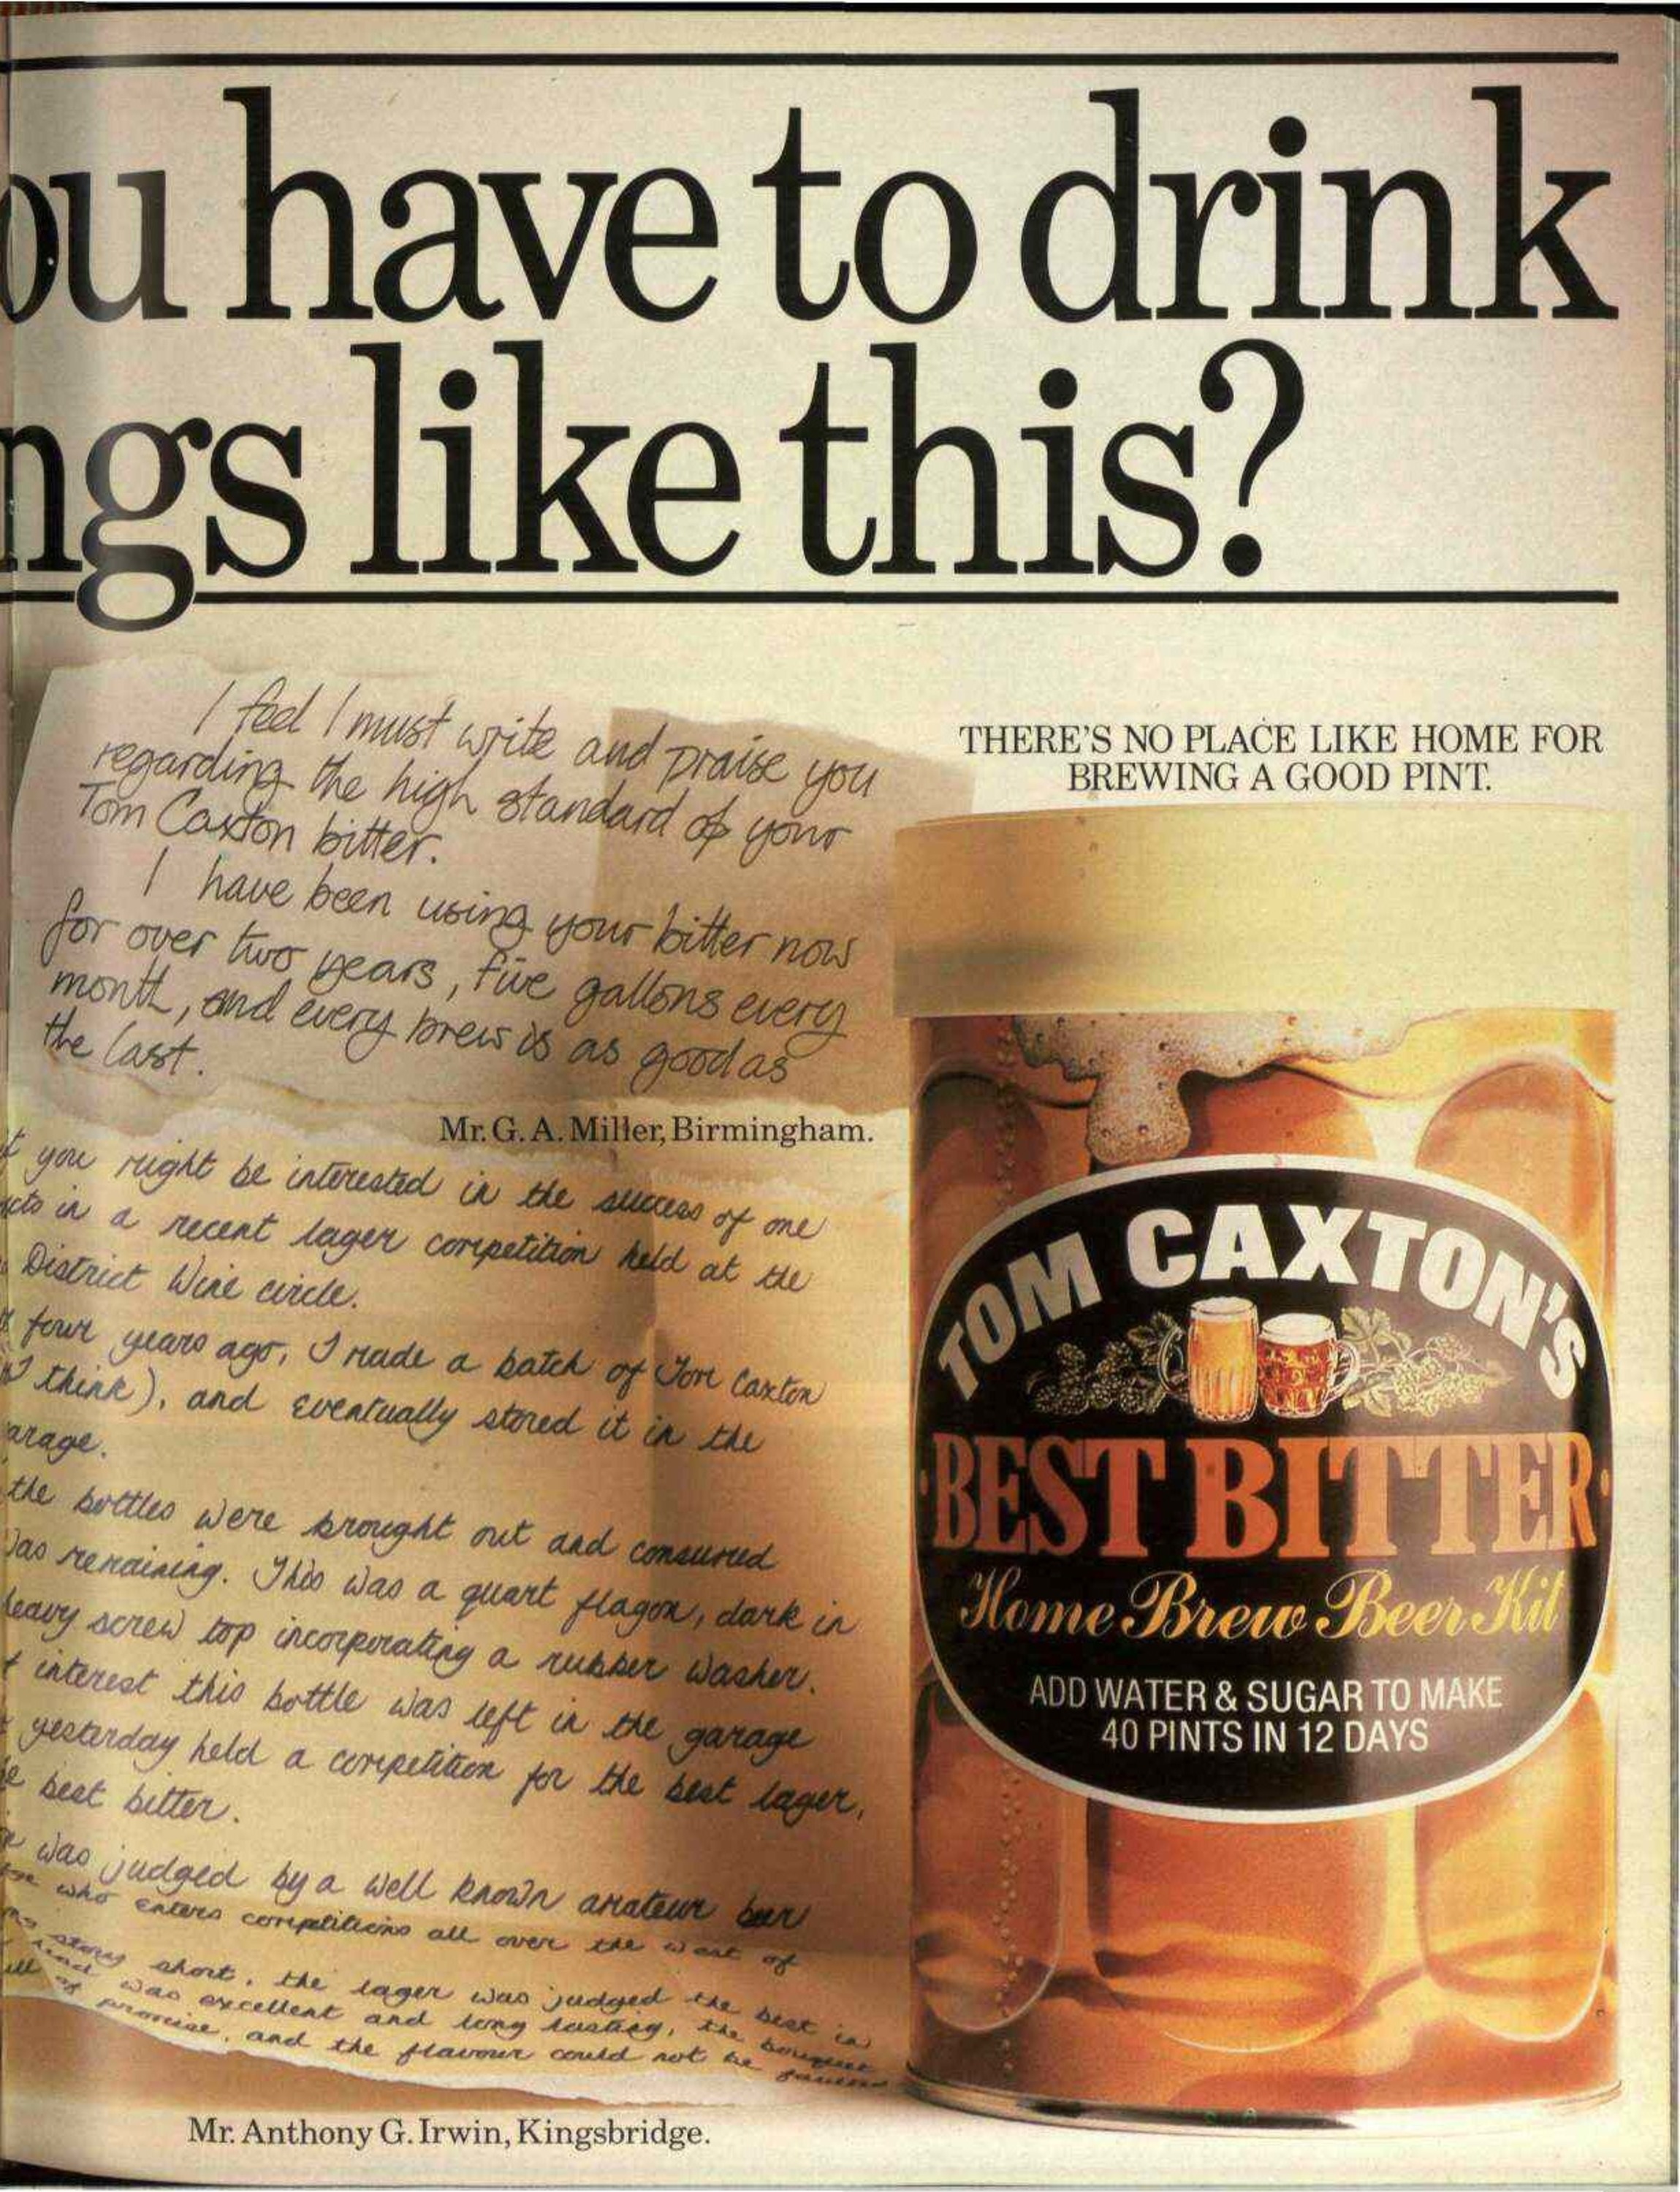 ou have to drink
ngs like this?
I feel I must write and praise you
regarding the high standard of your
Tom Caxton bitter.
I have been using your bitter now
for over two years, five gallons every
month, and every brew is as good as
the last.
Mr. G. A. Miller, Birmingham.
you might be interested in the success of one
in a recent lager competition held at the
District Wine circle.
four years ago, I made a batch of Tom Caxton
I think), and eventually stored it in the
arage.
the bottles were brought out and consumed
was remaining. This was a quart flagon, dark in
heavy screw top incorporating a rubber washer.
interest this bottle was left in the garage
yesterday held a competition for the best lager,
best bitter.
was judged by a well known amateur beer
who enters competitions all over the west of
story short, the lager was judged the best in
head was excellent and long lasting, the bouquet
of promise, and the flavour could not be
Mr. Anthony G. Irwin, Kingsbridge.
THERE'S NO PLACE LIKE HOME FOR
BREWING A GOOD PINT.
TOM CAXTON'S
BEST BITTER
Home Brew Beer Kit
ADD WATER & SUGAR TO MAKE
40 PINTS IN 12 DAYS